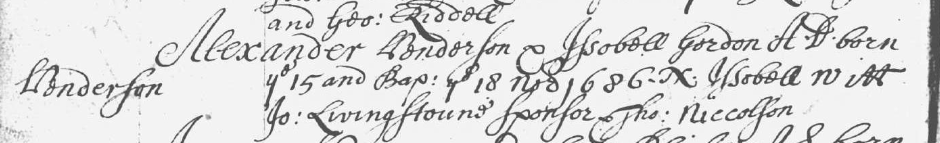 and Geo: Riddell
Alexander Henderson & Issobell Gordon A D born
Henderson
yͤ 15 and Bap: yͤ 18 Nov 1686. N: Issobell Witt
Jo: Livingstoune sponsor & Tho: Niccolson